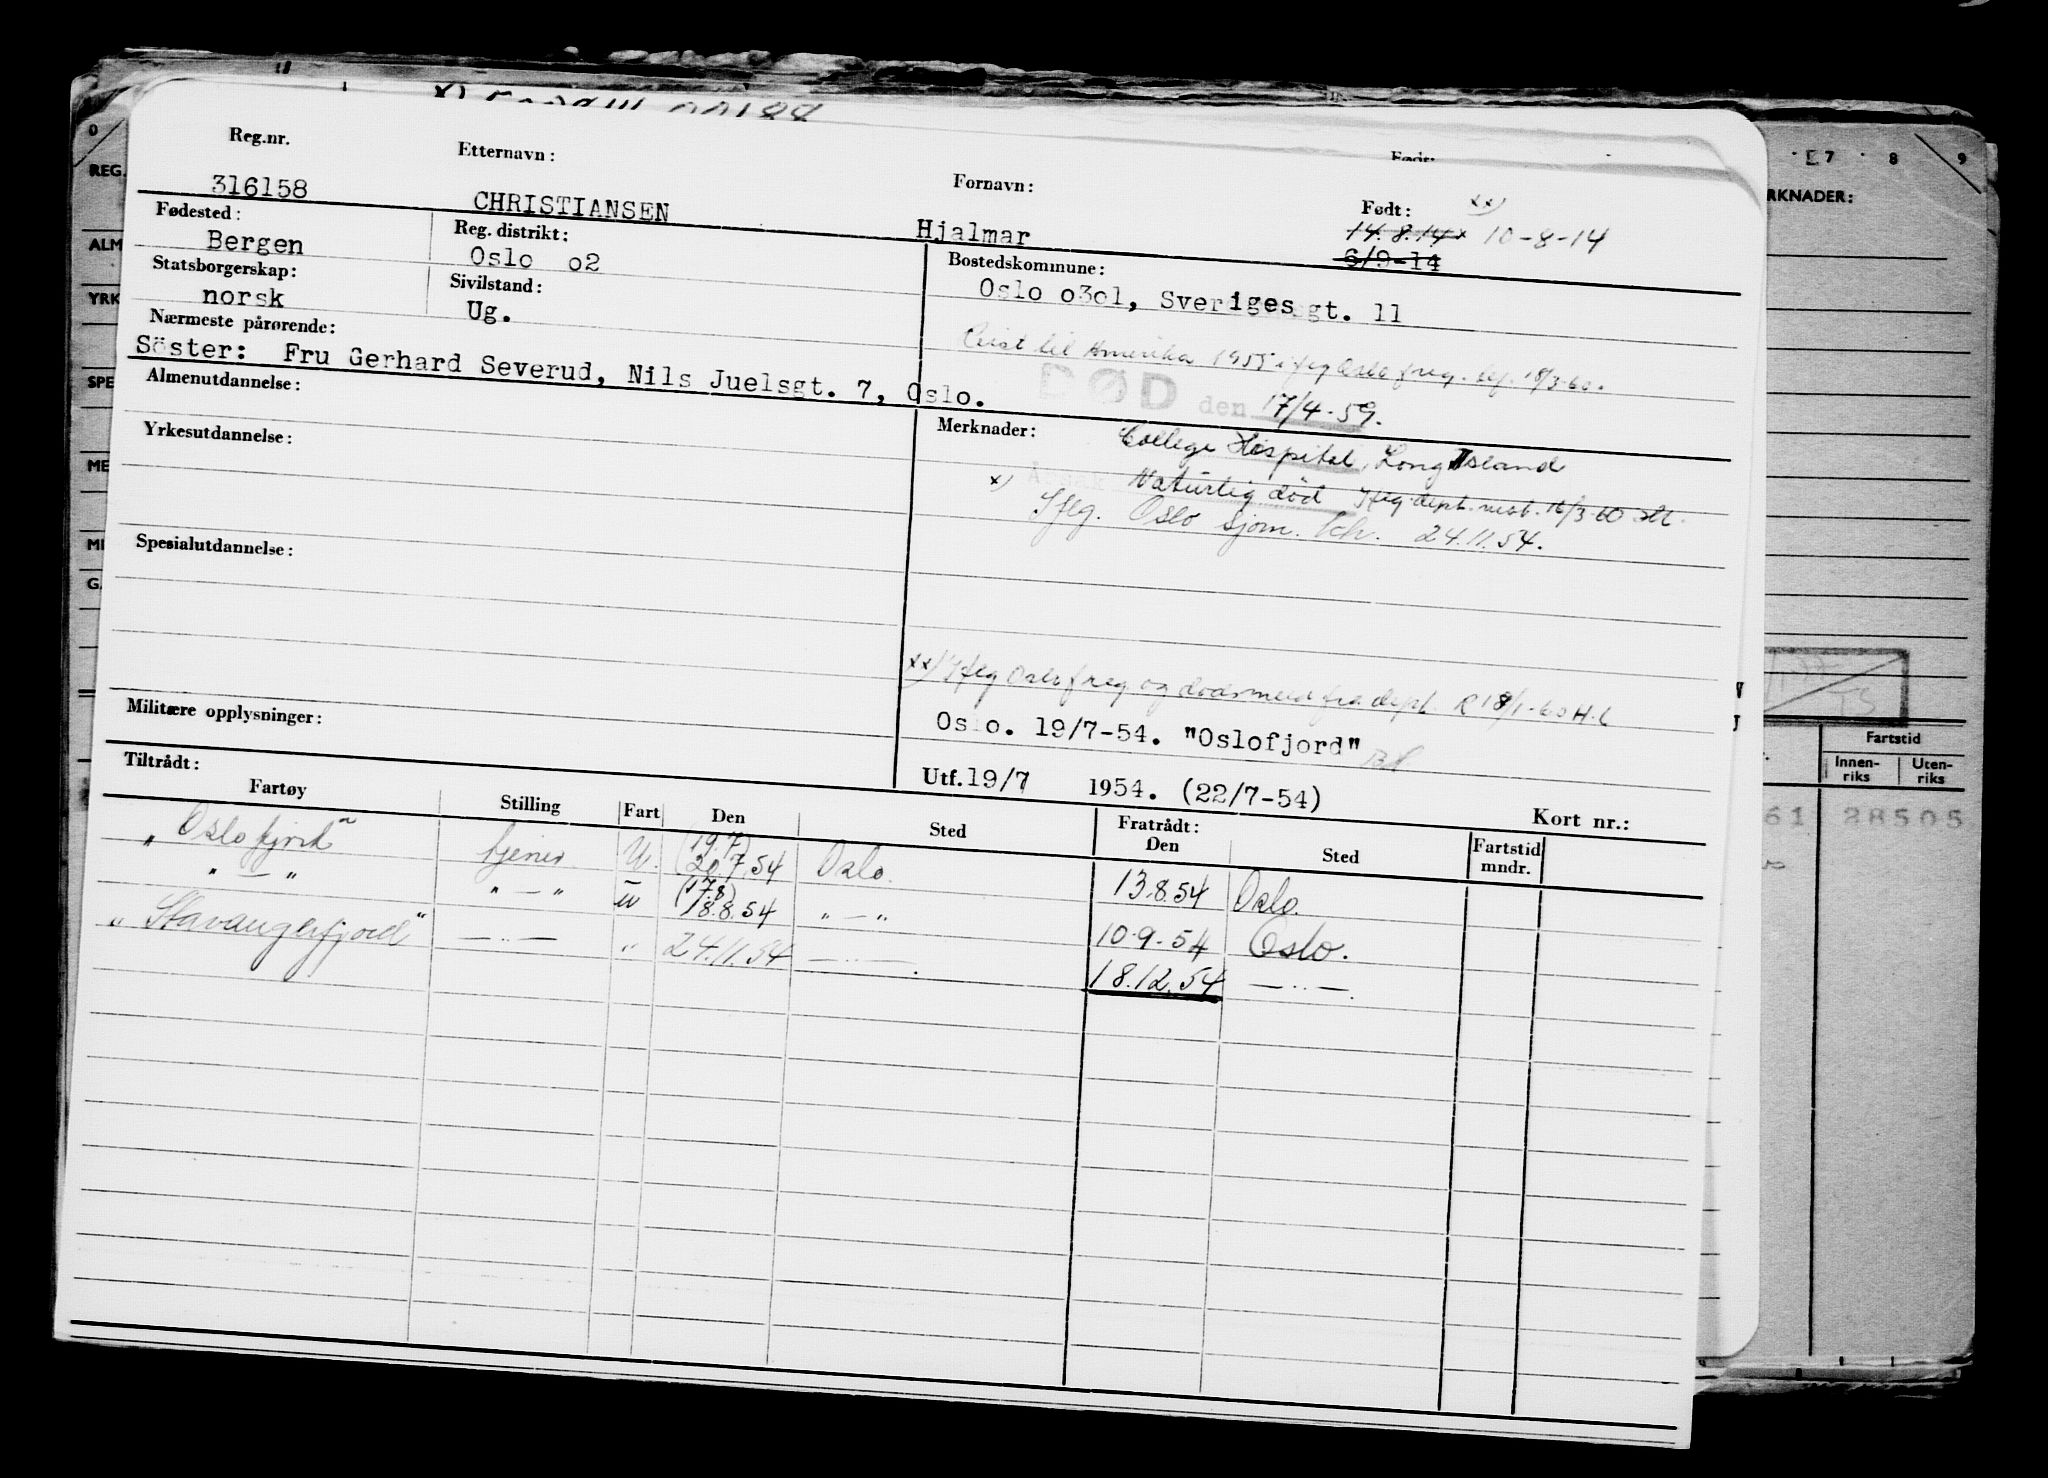 Reg.nr. Etternavn: Fornavn: Født:
316158 CHRISTIANSEN Hjalmar 14.8.14 x xx) 10-8-14
6/9-14
Fødested: Reg. distrikt: Bostedskommune:
Bergen Oslo o2 Oslo o3o1, Sverigesgt. 11
Statsborgerskap: Sivilstand:
norsk Ug.
Reist til Amerika 1955 ifлg Oslo freg. 18/3-60.
Nærmeste pårørende:
Söster: Fru Gerhard Severud, Nils Juelsgt. 7, Oslo.
DØD den 17/4-59.
Almenutdannelse:
Merknader: College Hospital, Long Island
Yrkesutdannelse:
Årsak Naturlig død Ifлg. dept. 16/3-60
x) Ifлg. Oslo Sjøm. 24.11.54.
Spesialutdannelse:
xx) Ifлg Oslo freg og dødsmeld fra dept. R 18/1-60 H.L
Militære opplysninger:
Oslo. 19/7-54. "Oslofjord"
Utf. 19/7 1954. (22/7-54) Kort nr.:
Tiltrådt: Fratrådt:
Fartøy Stilling Fart Den Sted Den Sted Fartstid mndr.
"Oslofjord" tjener U. (19.7) 20.7.54 Oslo. 13.8.54 Oslo.
" — " " — " u (17.8) 18.8.54 " — " 10-9-54 Oslo.
"Stavangerfjord" — " — " 24.11.54 — " — . 18.12.54 — " — .
7 8 9
REG.
ALM
YRK
SPE
ME
MI
G
RKNADER:
Fartstid
Innen-riks Uten-riks
61 28505